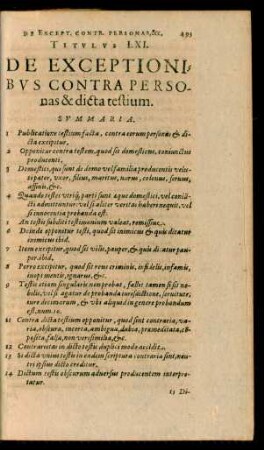 DE EXCEPT. CONTR. PERSONAS, &c. 491
TITULUS LXI.
DE EXCEPTIONI-
BVS CONTRA PERSO-
nas & dicta testium.
SVMMARIA.
1 Publicatione testium facta, contra eorum personas & di-
cta excipitur.
2 Opponitur contra testem, quod sit domesticus, coniunctus
producenti.
3 Domestici, qui sunt de domo vel familia producentis vt su-
pater, vxor, filius, maritus, nurus, colonus, seruus,
affinis, &c.
4 Quando testes vtriq; parti sunt aquè domestici, vel conui-
cti admittuntur: vel si aliter veritas haberi nequit, vel
si innocentia probanda est.
5 An testis subditi testimonium valeat, remissiuè.
6 Deinde opponitur testi, quod sit inimicus & quis dicatur
inimicus ibid.
7 Item excipitur, quod sit vilis, pauper, & quis dicatur pau-
per ibid.
8 Porro excipitur, quod sit reus criminis, infidelis, infamis,
inops mentis, ignarus, &c.
9 Testis etiam singularis non probat, fallit tamen si sit no-
bilis, vel si agatur de probanda iurisdictione, seruitute,
iure decimarum, & vbi aliquid in genere probandum
est, num. 10.
11 Contra dicta testium opponitur, quod sint contraria, va-
ria, obscura, incerta, ambigua, dubia, præmeditata, ex-
posita, falsa, non verisimilia, &c.
12 Contrarietas in dicto testis duplici modo accidit.
13 Si dicta vnius testis in eadem scriptura contraria sint, neu-
tri ipsius dicto creditur.
14 Dictum testis obscurum aduersus producentem interpre-
tatur.
15 Di-